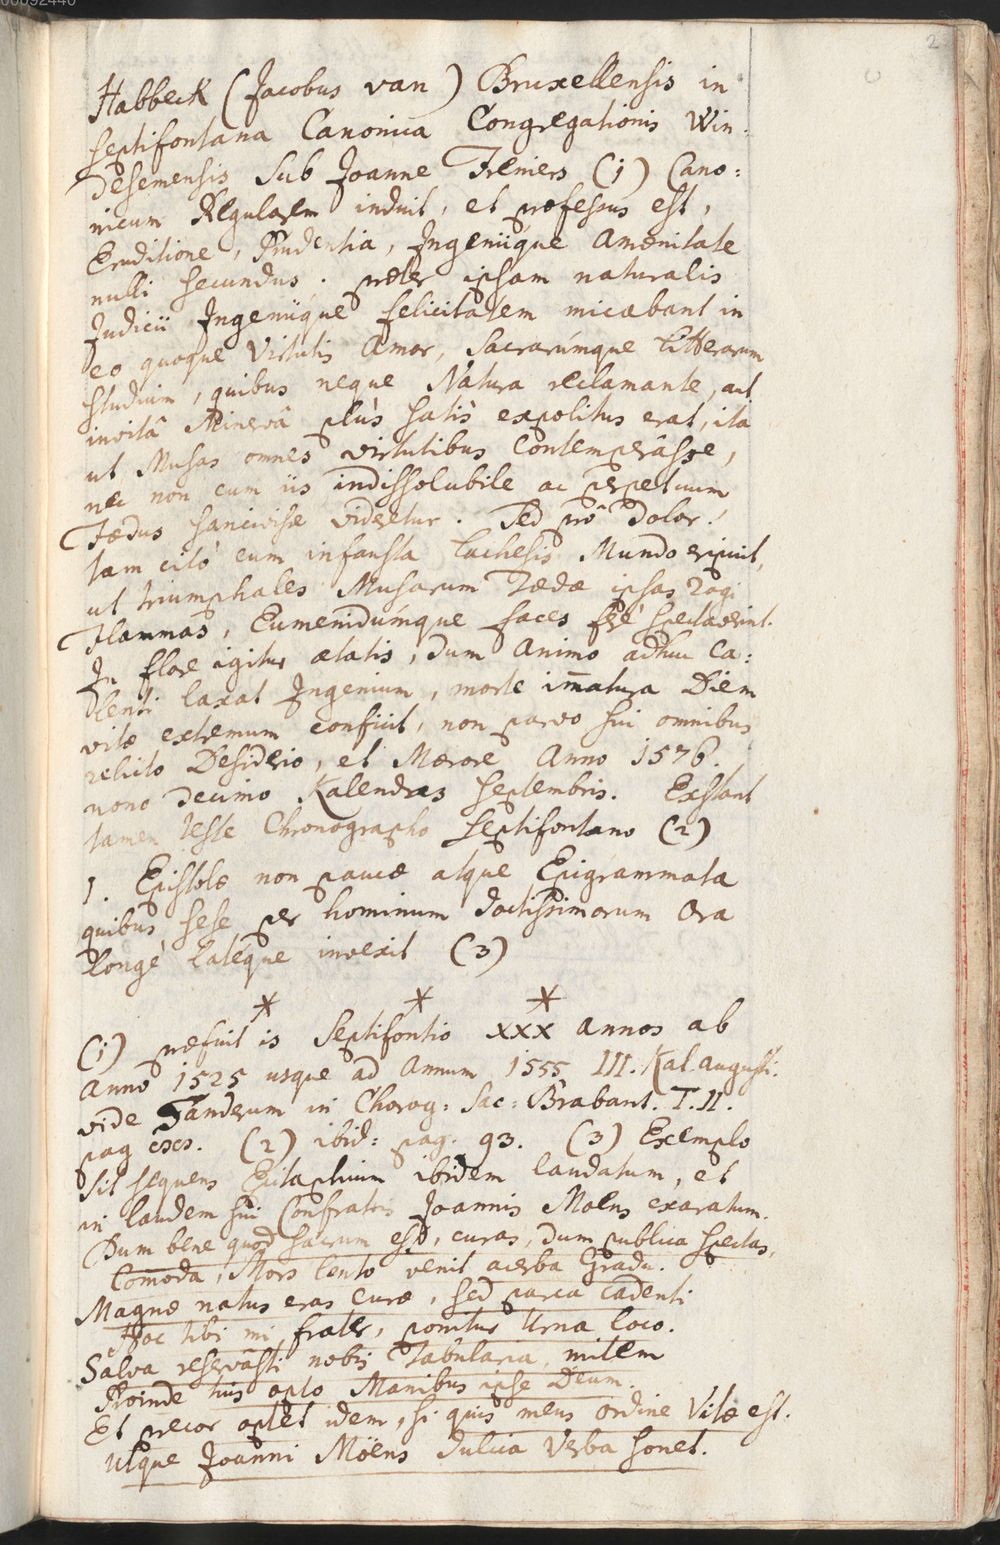 00092440
2
Habbeck (Jacobus van) Bruxellensis in
septifontana Canonica Congregationis Win-
desemensis sub Joanne Freniers (1) Cano:
nicum Regularem induit, et professus est,
Eruditione, Prudentia, Ingeniique amœnitate
nulli secundus. præter ipsam naturalis
Judicii Ingeniique felicitatem micabant in
eo quoque Virtutis Amor, Sacrarúmque Litterarum
studium, quibus neque Natura reclamante, aut
invitâ Minervâ plus satis expolitus erat, ita
ut Musas omnes virtutibus Contemperâsse,
nec non cum iis indissolubile ac perpetuum
Fœdus sancivisse videretur. Sed prô dolor!
tam citò eum infausta Lachesis Mundo eripuit,
ut triumphales Musarum Tædæ ipsas Rogi
Flammas, Eumenidúmque faces ferè spectaverint.
In flore igitur ætatis, dum animo adhuc Ca:
lenti laxat Ingenium, morte im̄atura Diem
vitæ extremum confecit, non parvo sui omnibus
relicto Desiderio, et Mœrore Anno 1576.
nono decimo Kalendras Septembris. Exstant
tamen teste Chronographo Septifontano (2)
1. Epistolæ non paucæ atque Epigrammata
quibus sese per hominum doctissimorum Ora
Longè Latéque invexit (3)
* * *
(1) præfuit is Septifontio XXX annos ab
Anno 1525 usque ad Annum 1555 III. Kal. augusti.
vide Sanderum in Chorog: Sac: Brabant. T. II.
pag (2) ibid: pag. 93. (3) Exemplo
sit sequens Epitaphium ibidem laudatum, et
in laudem sui Confratris Joannis Moens exaratum.
Dum bene quod sacrum est, curas, dum publica spectas,
Com̄oda, Mors lento venit acerba Gradu.
Magnæ natus eras curæ, sed parca cadenti
Hoc tibi mi frater, ponitur Urna loco.
Salva reservâsti nobis Tabularia, mitem
Proinde tuis opto Manibus ipse Deum.
Et precor optet idem, si quis meus ordine Vitæ est.
Utque Joanni Möens dulcia Verba sonet.